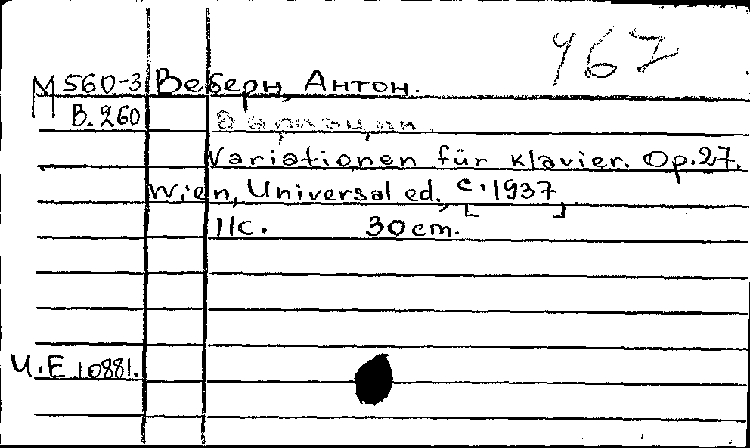 467
M 560-3 Веберн, Антон.
В. 260 Вариации.
Variationen für Klavier. Op. 27.
Wien, Universal ed., [c. 1937]
11 c. 30 cm.
U.E 10881.